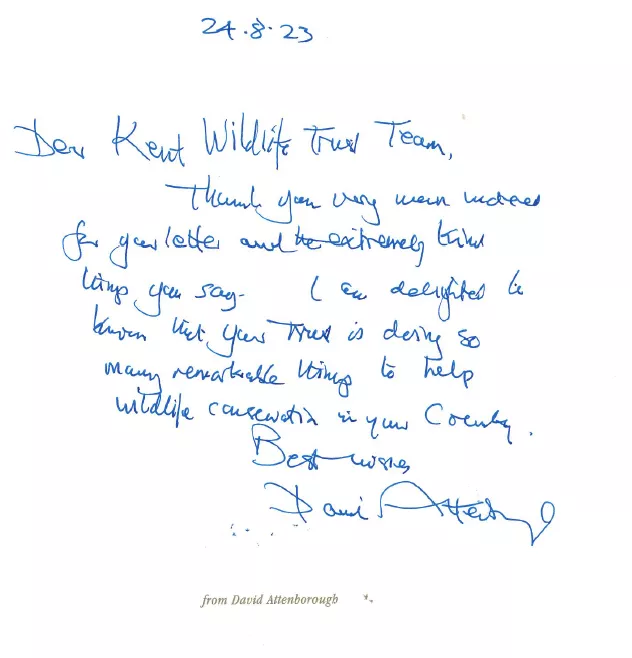 24.8.23
Dear Kent Wildlife Trust Team,
Thank you very much indeed
for your letter and the extremely kind
things you say. I am delighted to
know that your Trust is doing so
many remarkable things to help
wildlife conservation in your County.
Best wishes
David Attenborough
from David Attenborough